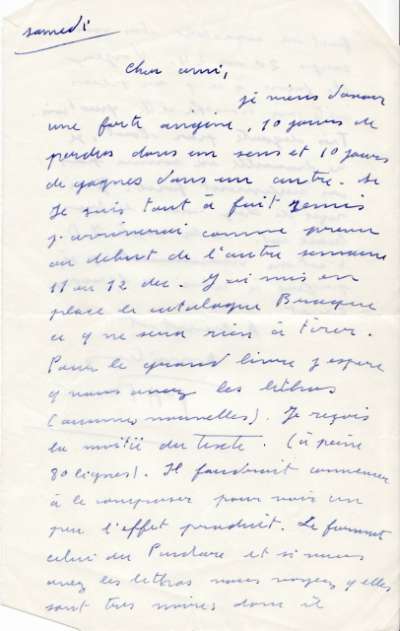 samedi
Cher ami,
je viens d'avoir
une forte angine, 10 jours de
perdus dans un sens et 10 jours
de gagnés dans un autre. Si
je suis tout à fait remis
j'arriverai comme prévu
au début de l'autre semaine
11 ou 12 dec. J'ai mis en
place le catalogue Braque
il y ne sera rien à tirer.
Pour le grand livre j'espère
q vous avez les lithos
(aucunes nouvelles). Je reçois
la moitié du texte. (à peine
80 lignes). Il faudrait commencer
à le composer pour voir un
peu l'effet produit. Le format
celui du Pindare et si vous
avez les lithos vous voyez q'elles
sont très noires donc il